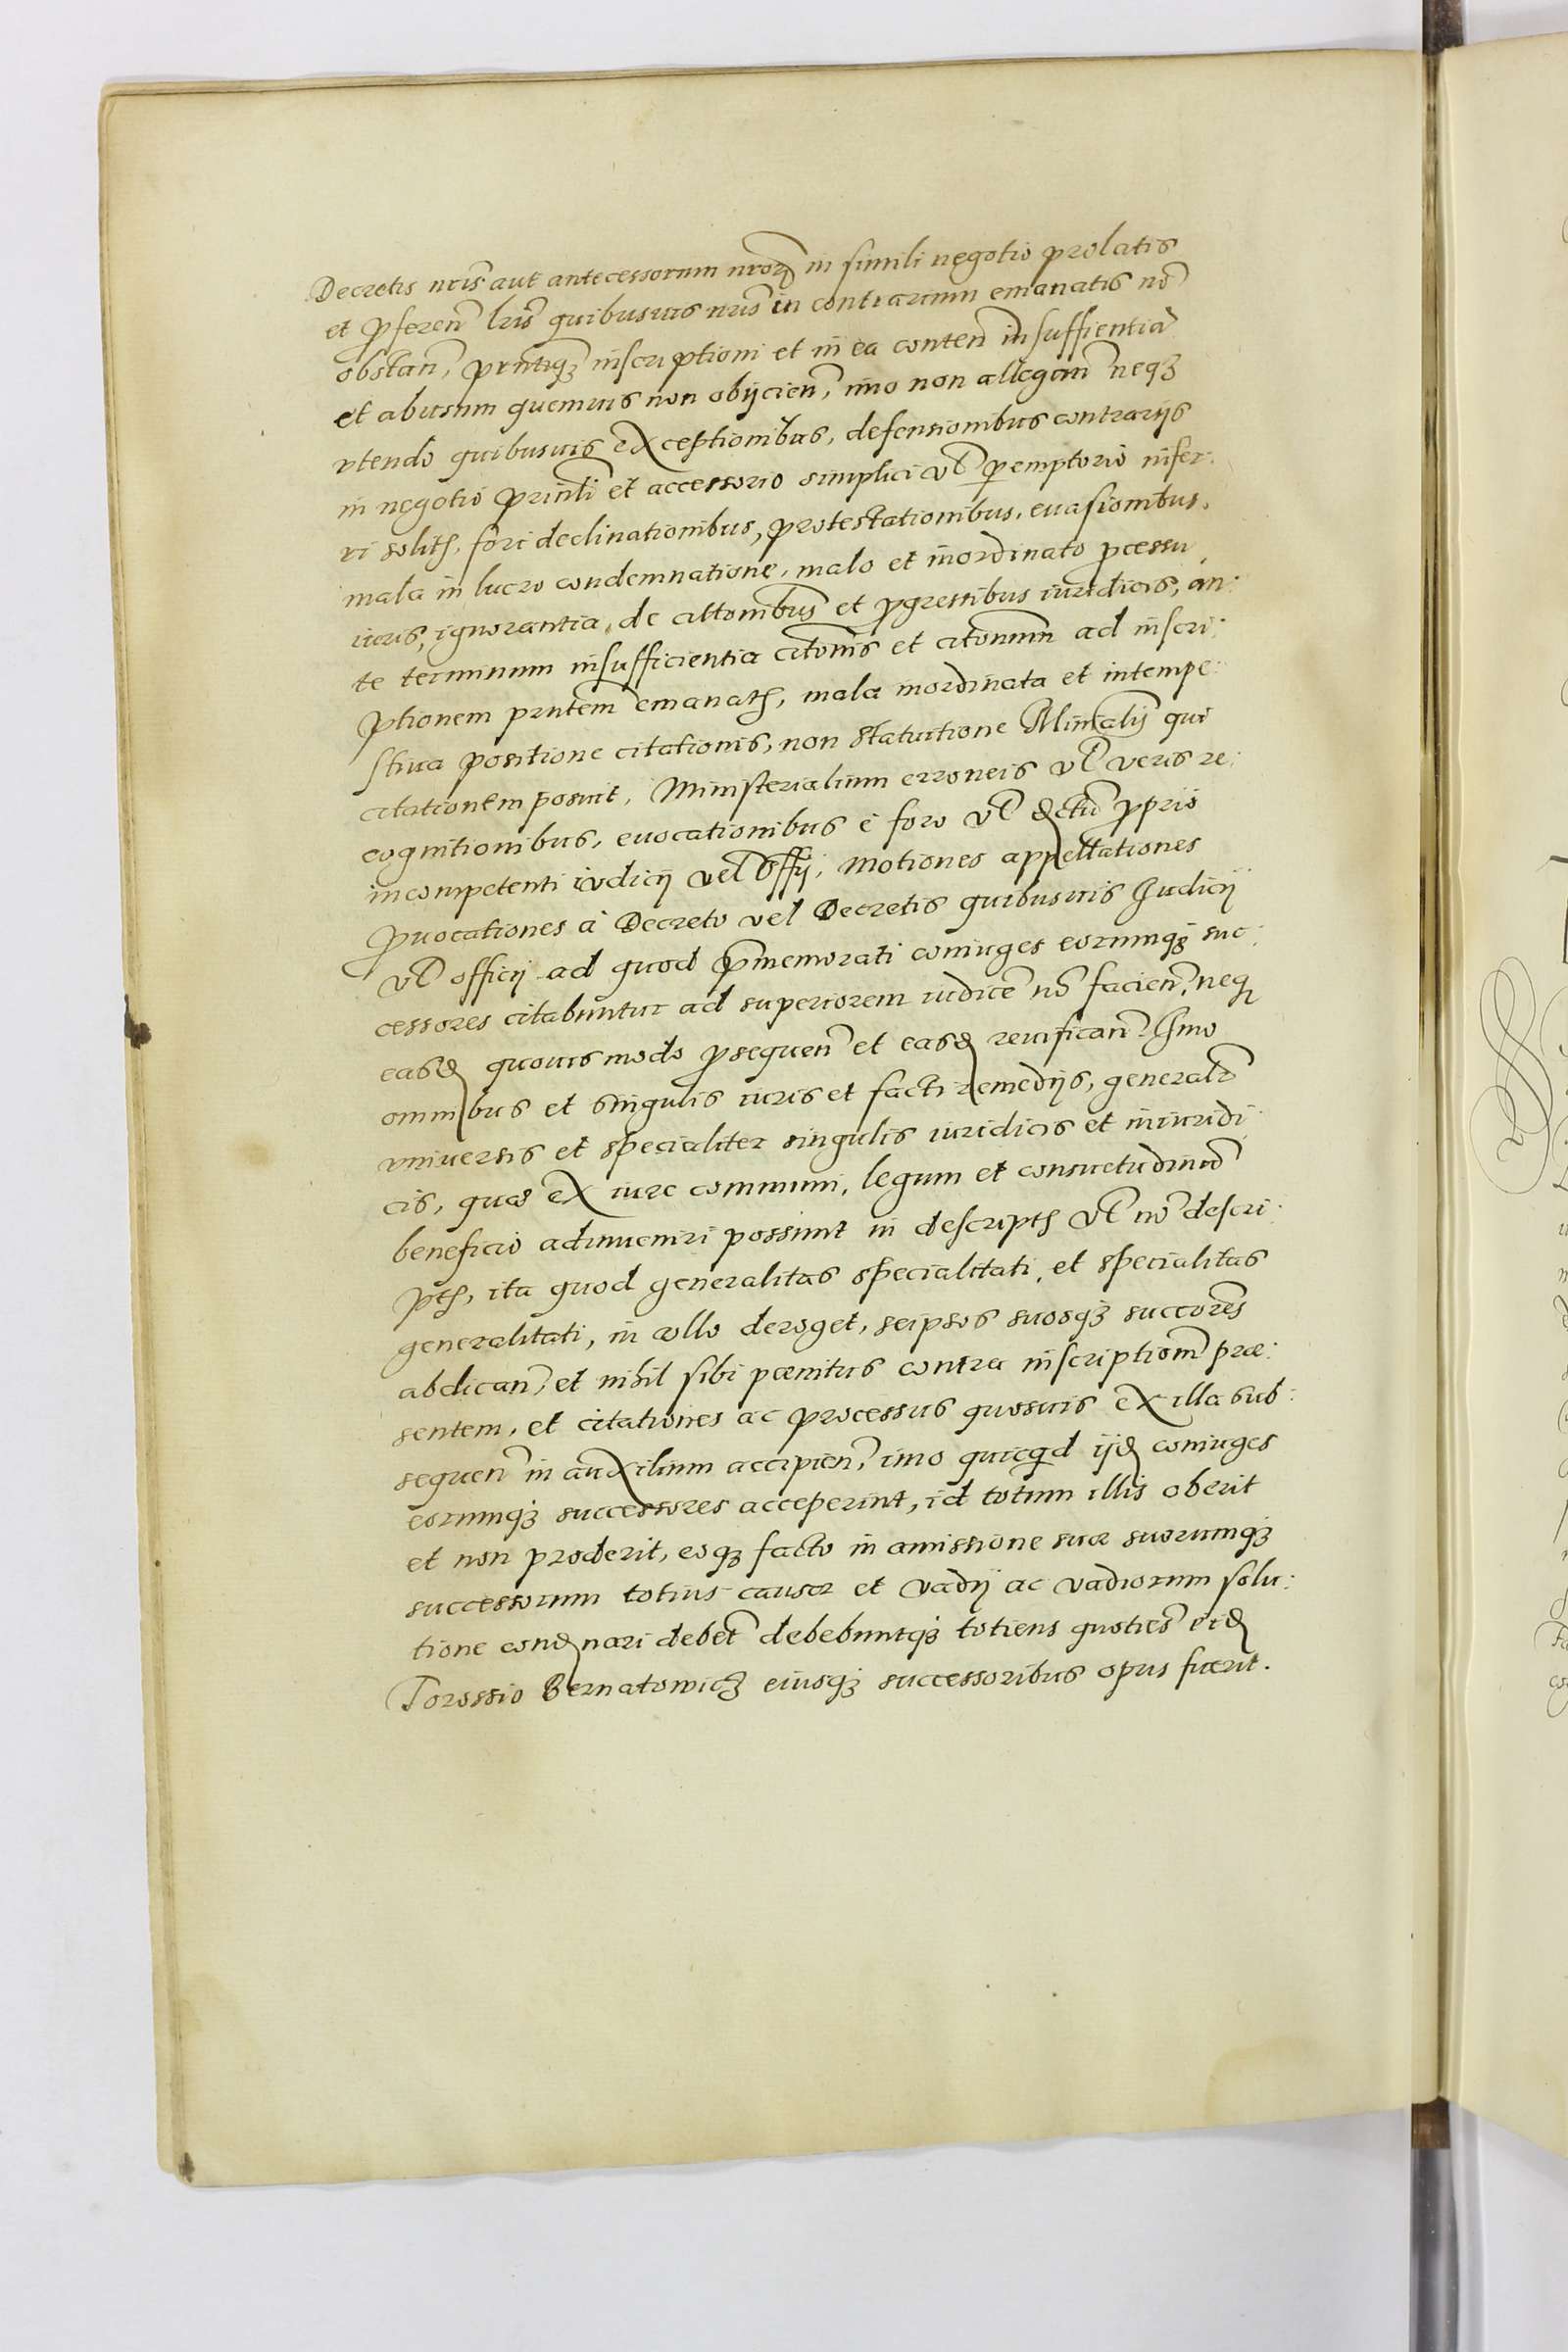 Decretis nris aut antecessorum nror in simili negotio prolatis
et pferen lris quibusvis nris in contrarium emanatis no
obstan, prntiq3 inscriptioni et in ea conten insuffientia
et abusum quemvis non obijcien, imo non allegan neq3
vtendo quibusvis exceptionibus, defensionibus contrarijs
in negotio prinli et accessorio simplici vl pemptorio infer:
ri solit, fori declinationibus, protestationibus, evasionibus,
mala in lucro condemnatione, malo et inordinato pcessu,
iuris, ignorantia, de actionibus et pgressibus iuridicis, an:
te terminum insufficientia citonis et citonum ad inscri:
ptionem prntem emanat, mala inordinata et intempe:
stiva positione citationis, non statuitione Minialij qui
citationem posuit, Ministerialium erroneis vl veris re:
cognitionibus, evocationibus è foro vl dctu pprio
incompetenti iudicij vel offij, Motiones appellationes
pvocationes à Decreto vel Decretis quibusvis Judicij
vl officij ad quod pmemorati coniuges eorumq3 suc:
cessores citabuntur ad superiorem iudice no facien, neq
easd quovis modo psequen et easd revifican. Imo
omnibus et singulis iuris et facti remedijs, generalr
vniversis et specialiter singulis iuridicis et iniuridi:
cis, quae ex iure communi, legum et consuetudinu
beneficio adinveniri possunt in descript vl no descri:
pt, ita quod generalitas specialitati, et specialitas
generalitati, in nollo deroget, seipsos suosq3 succores
abdican, et nihil sibi paenitus contra inscriptiom prae:
sentem, et citationes ac processus quosvis ex illa sub:
sequen in auxilium accipien, imo quicqd ijd coniuges
eorumq3 successores acceperint, id totum illis oberit
et non proderit, eoq3 facto in amissione suae suorumq3
successorum totius causae et vadij ac vadiorum solu:
tione cond nari debet debebuntq3 totiens quoties eid
Torossio Bernatowicz eiusq3 successoribus opus fuerit.